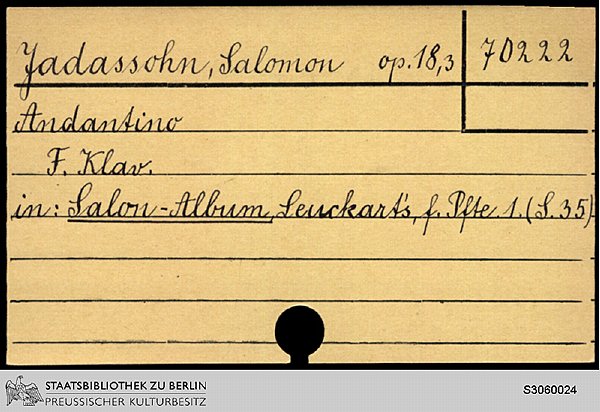 Jadassohn, Salomon op. 18,3 70222
Andantino
F. Klav.
in: Salon-Album, Leuckart's, f. Pfte 1. (S. 35)
STAATSBIBLIOTHEK ZU BERLIN
PREUSSISCHER KULTURBESITZ
S3060024